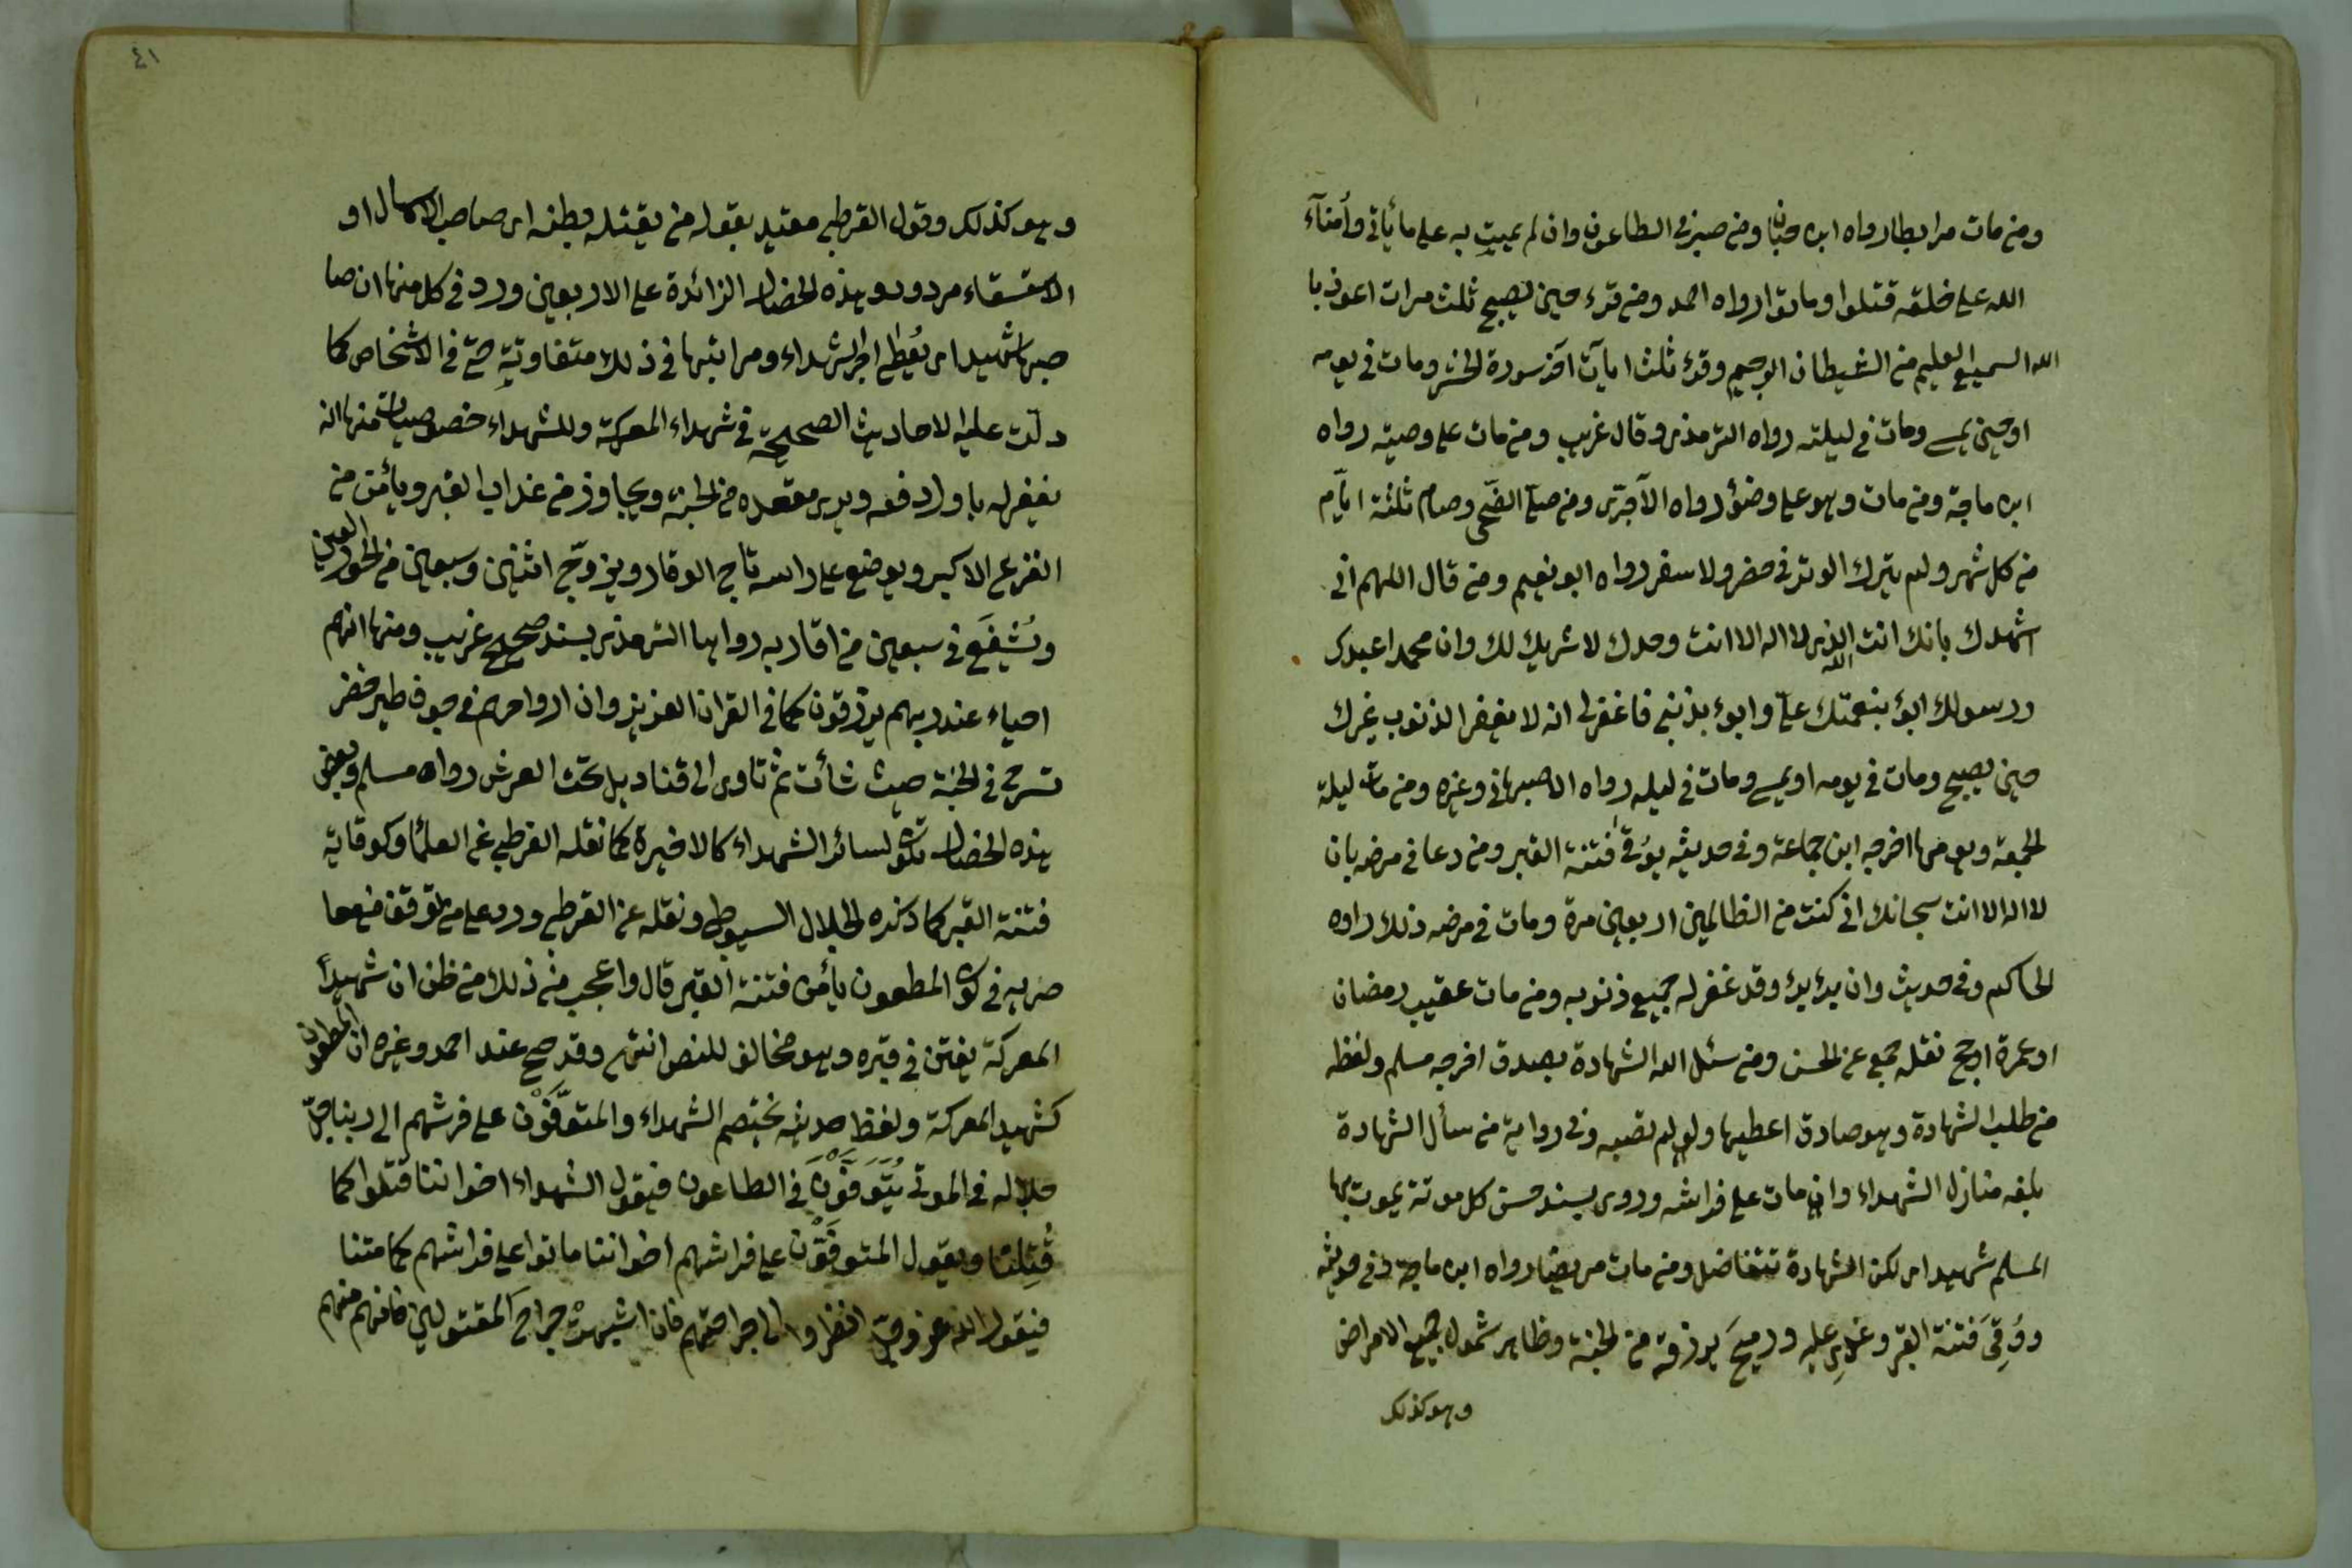 ومن مات مرابطا رواه ابن حبان ومن صبر في الطاعون وان لم يمت به على ما يأتي وأمناء
الله على خلقه قتلوا وماتوا رواه احمد ومن قرء حين يصبح ثلث مرات اعوذ با
الله السميع العليم من الشيطان الرجيم وقرء ثلث ايات آخر سورة الحشر ومات في يومه
او حين يمسي ومات في ليلته رواه الترمذي وقال غريب ومن مات على وصية رواه
ابن ماجة ومن مات وهو على وضوء رواه الآجري ومن صلى الضحى وصام ثلثة ايام
من كل شهر ولم يترك الوتر في حضر ولا سفر رواه ابو نعيم ومن قال اللهم اني
اشهدك بانك انت الله الذي لا اله الا انت وحدك لا شريك لك وان محمدا عبدك
ورسولك ابوء بنعمتك علي وابوء بذنبي فاغفر لي انه لا يغفر الذنوب غيرك
حين يصبح ومات في يومه او يمسي ومات في ليله رواه الاصبهاني وغيره ومن مات ليلة
الجمعة ويومها اخرجه ابن جماعة وفي حديثه يوقى فتنة القبر ومن دعا في مرضه بان
لا اله الا انت سبحانك اني كنت من الظالمين اربعين مرة ومات في مرضه ذلك رواه
الحاكم وفي حديث وان برء برء وقد غفر له جميع ذنوبه ومن مات عقيب رمضان
او عمرة او حج نقله جمع عن الحسن ومن سئل الله الشهادة بصدق اخرجه مسلم ولفظه
من طلب الشهادة وهو صادق اعطيها ولو لم تصبه وفي رواية من سأل الشهادة
بلغه منازل الشهداء وان مات على فراشه وروى بسند حسن كل موتة يموت بها
المسلم شهيدا لكن الشهادة تتفاضل ومن مات مريضا رواه ابن ماجة وفي حديثه
ووقي فتنة القبر وغدي عليه وريح برزقه من الجنة وظاهر شمول جميع الامراض
وهو كذلك
٤١
وهو كذلك وقول القرطبي مقيد بقوله من يقتله بطنه اى صاحب الاسهال او
الاستسقاء مردود وهذه الخصال الزائدة على الاربعين ورد في كل منها ان صا
حبها شهيد اى يعطى اجر الشهداء ومراتبها في ذلك متفاوتة حتى في الاشخاص كما
دلت عليه الاحاديث الصحيحة في شهداء المعركة وللشهداء خصوصيات منها انه
يغفر له باول دفعه ويرى مقعده من الجنة ويجاوز من عذاب القبر ويأمن من
الفزع الاكبر ويوضع على راسه تاج الوقار ويزوج اثنتين وسبعين من الحور العين
ويشفع في سبعين من اقاربه رواها الترمذي بسند صحيح غريب ومنها انهم
احياء عند ربهم يرزقون كما في القران العزيز وان ارواحهم في جوف طير خضر
تسرح في الجنة حيث شأت ثم تاوى الى قناديل تحت العرش رواه مسلم وبعض
هذه الخصال تكون لسائر الشهداء كالاخيرة كما نقله القرطبي عن العلماء وكوقاية
فتنة القبر كما ذكره الجلال السيوطي ونقله عن القرطبي ورد على من توقف فيها
في كون المطعون يأمن فتنة القبر قال واعجب من ذلك من ظن ان شهيداً
المعركة يفتن في قبره وهو مخالف للنص انتهى وقد صح عند احمد وغيره ان المطعون
كشهيد المعركة ولفظ حديثه يختصم الشهداء والمتوفون على فرشهم الى ربنا جل
جلاله في الموتى يتوفون في الطاعون فيقول الشهداء اخواننا قتلوا كما
قتلنا ويقول المتوفون على فراشهم اخواننا ماتوا على فراشهم كما متنا
فيقول الله عز وجل انظروا الى جراحتهم فان اشبهت جراح المقتولين فانهم منهم